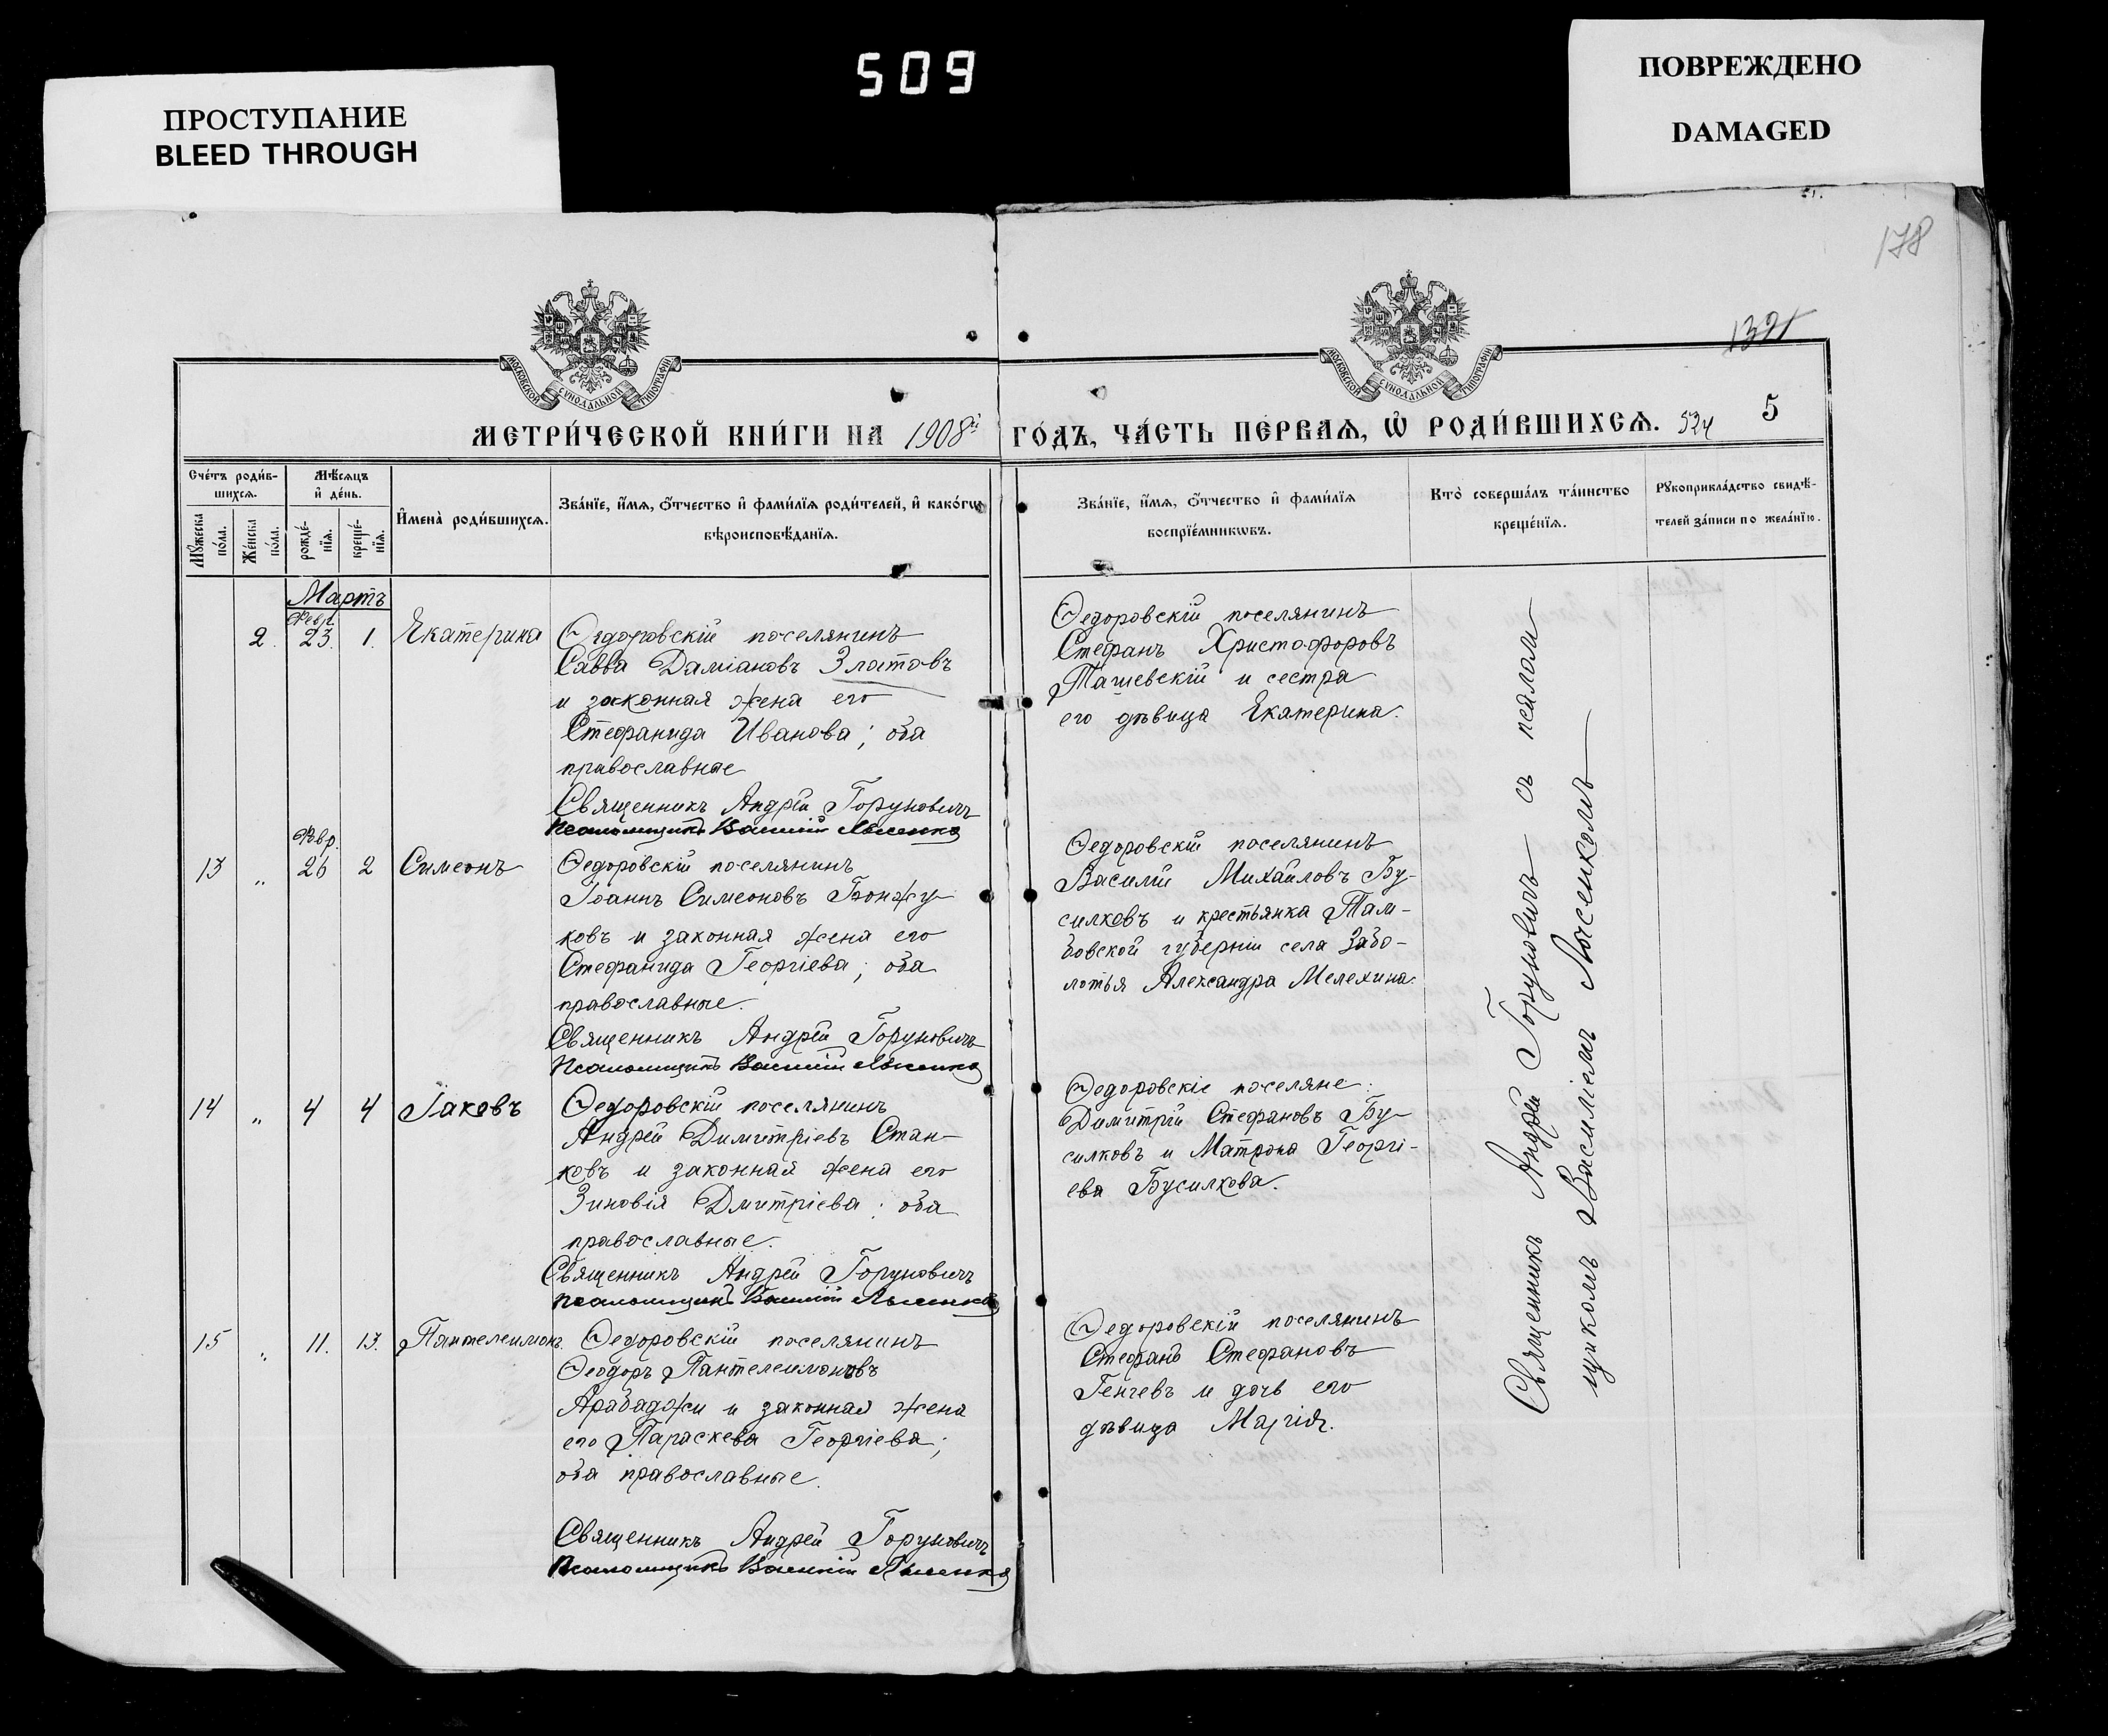 509
ПРОСТУПАНИЕ
BLEED THROUGH
ПОВРЕЖДЕНО
DAMAGED
178
МОСКОВСКОЙ СѴНОДАЛЬНОЙ ТИПОГРАФІИ
МОСКОВСКОЙ СѴНОДАЛЬНОЙ ТИПОГРАФІИ
МЕТРИ́ЧЕСКОЙ КНИ́ГИ НА 1908й ГО́ДЪ, ЧА́СТЬ ПЕ́РВАѦ, Ѡ҆ РОДИ́ВШИХСѦ. 524 5
Сче́тъ роди́в-
шихсѧ.
Мꙋ́жеска
по́ла.
Же́нска
по́ла.
Мѣ́сѧцъ
и҆ де́нь.
рожде́-
нїѧ.
креще́-
нїѧ.
И҆мена̀ роди́вшихсѧ.
Зва́нїе, и҆́мѧ, ѻ҆́тчество и҆ фами́лїѧ роди́телей, и҆ како́гѡ
вѣроисповѣ́данїѧ.
Зва́нїе, и҆́мѧ, ѻ҆́тчество и҆ фами́лїѧ
воспрїе́мникѡвъ.
Кто̀ соверша́лъ та́инство
креще́нїѧ.
Рꙋкоприкла́дство свидѣ́-
телей за́писи по жела́нїю.
Мартъ
Февр.
2. 23. 1. Екатерина
Ѳедоровскій поселянинъ
Савва Даміановъ Златовъ
и законная жена его
Стефанида Иванова; оба
православные
Священникъ Андрей Горуновичъ
Псаломщикъ Василій Лысенко
Ѳедоровскій поселянинъ
Стефанъ Христофоровъ
Ташевскій и сестра
его дѣвица Екатерина.
Февр.
13 „ 26 2 Симеонъ
Ѳедоровскій поселянинъ
Іоаннъ Симеоновъ Бонжу-
ковъ и законная жена его
Стефанида Георгіева; оба
православные.
Священникъ Андрей Горуновичъ
Псаломщикъ Василій Лысенко
Ѳедоровскій поселянинъ
Василій Михайловъ Бу-
силковъ и крестьянка Там-
бовской губерніи села Забо-
лотья Александра Мелехина.
14 „ 4 4 Іаковъ
Ѳедоровскій поселянинъ
Андрей Димитріевъ Стан-
ковъ и законная жена его
Зиновія Дмитріева; оба
православные.
Священникъ Андрей Горуновичъ
Псаломщикъ Василій Лысенко
Ѳедоровскіе поселяне:
Димитрій Стефановъ Бу-
силковъ и Матрона Георгі-
ева Бусилкова.
15 „ 11. 13. Пантелеимонъ.
Ѳедоровскій поселянинъ
Ѳеодоръ Пантелеимоновъ
Арабаджи и законная жена
его Параскева Георгіева;
оба православные.
Священникъ Андрей Горуновичъ
Псаломщикъ Василій Лысенко
Ѳедоровскій поселянинъ
Стефанъ Стефановъ
Генчевъ и дочь его
дѣвица Марія.
Священникъ Андрей Горуновичъ съ псалом
щикомъ Василіемъ Лысенкомъ